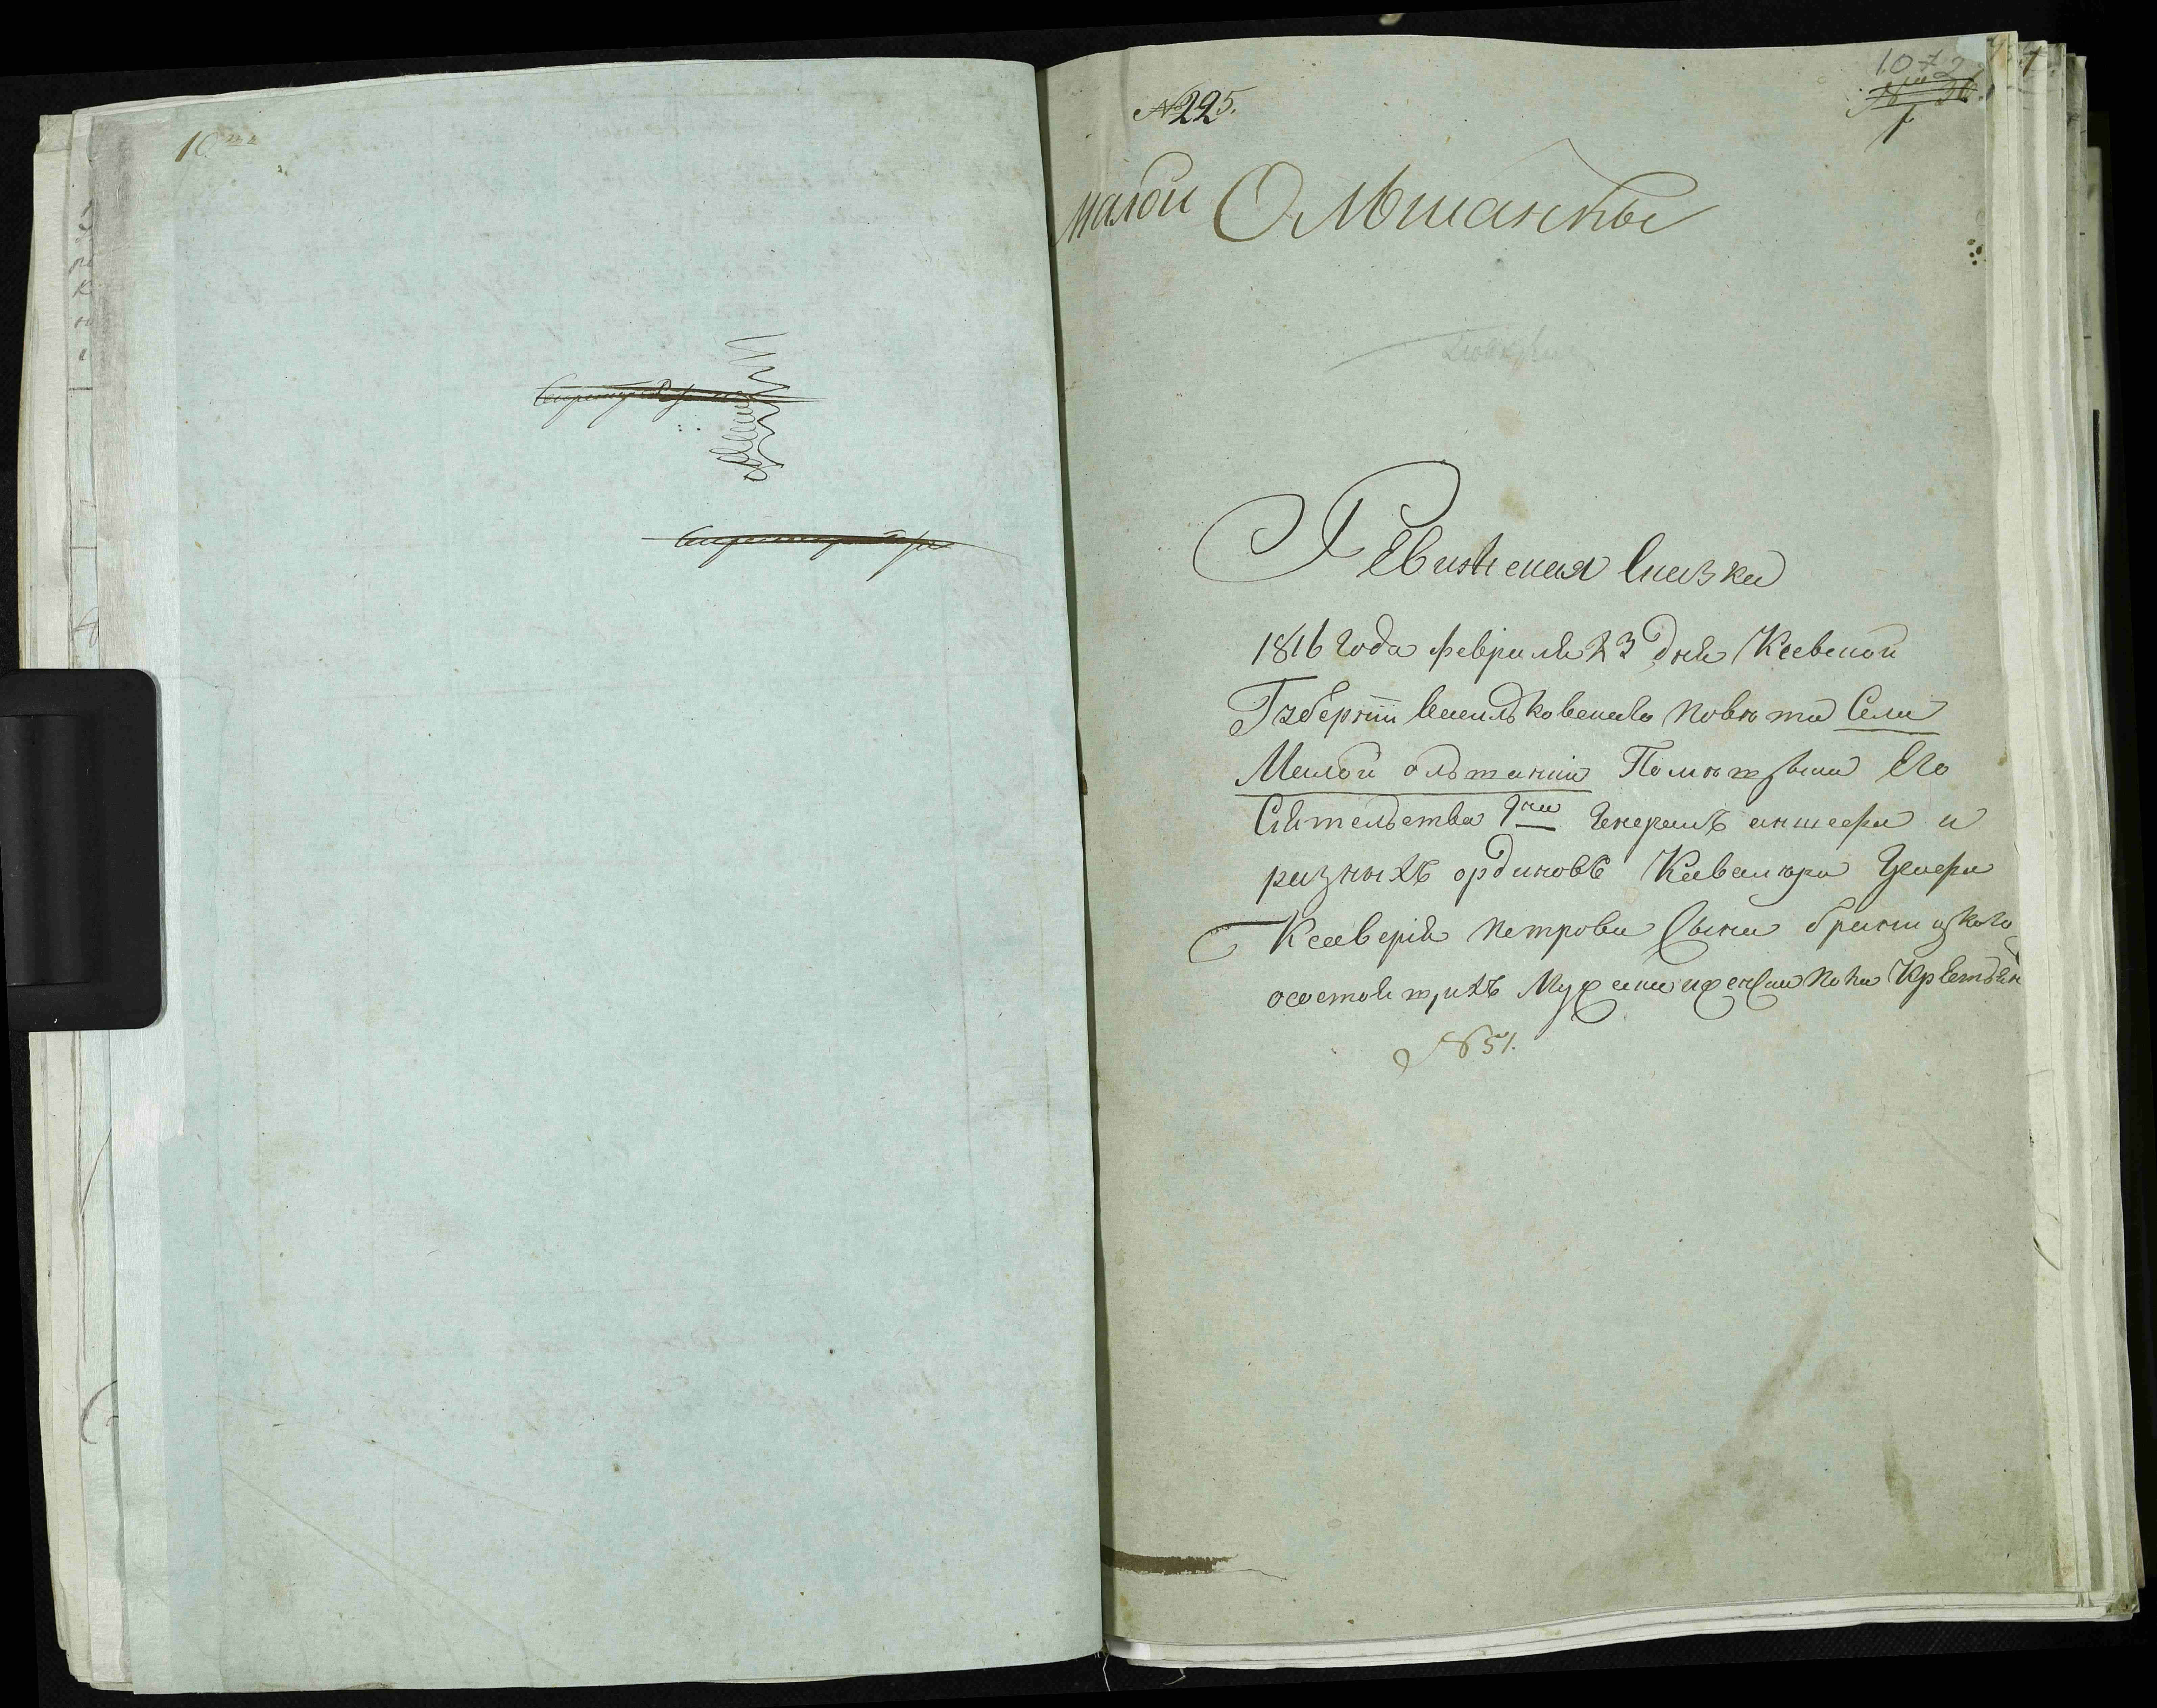 10
№225.
1072
1
малои Ольшанки
Ревизская сказка
1816 года февраля 23 дня Киевской
Губернiи васильковскаго повѣта Села
Малой ольшанки Помѣщика Его
Сіятельства Гна Генералъ аншефа и
разныхъ ординовъ Кавалера Графа
Ксаверія петрова сына браницкаго
осостоящихъ мужеска и женска пола крестьян
№ 51.